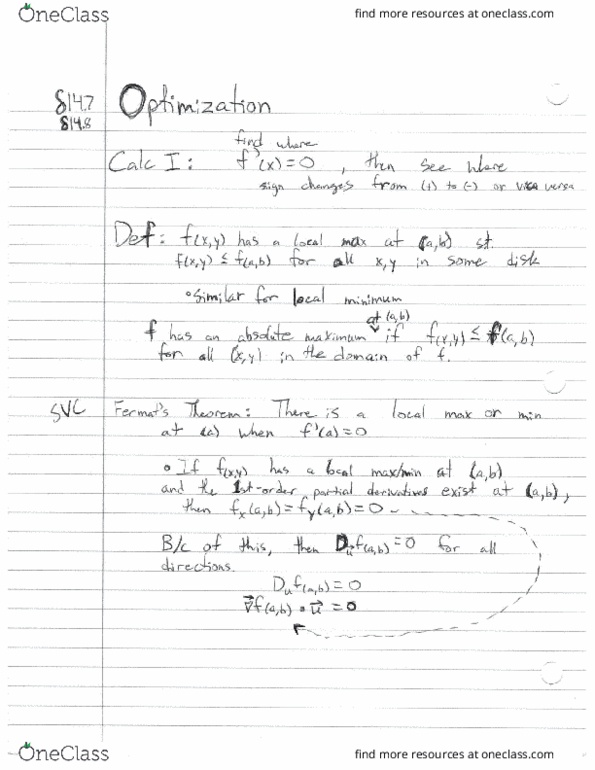 OneClass
find more resources at oneclass.com
§14.7
§14.8
Optimization
find where
Calc I: f'(x)=0, then see where
sign changes from (+) to (-) or vice versa
Def: f(x,y) has a local max at (a,b) st.
f(x,y) ≤ f(a,b) for all x,y in some disk
• Similar for local minimum
at (a,b)
f has an absolute maximum if f(x,y) ≤ f(a,b)
for all (x,y) in the domain of f.
SVC
Fermat's Theorem: There is a local max or min
at (a) when f'(a)=0
• If f(x,y) has a local max/min at (a,b)
and the 1st-order partial derivatives exist at (a,b),
then fx(a,b)=fy(a,b)=0
B/c of this, then Duf(a,b)=0 for all
directions.
Duf(a,b)=0
∇⃗f(a,b) • u⃗ = 0
OneClass
find more resources at oneclass.com